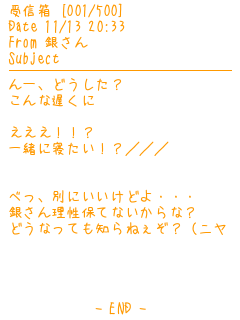 受信箱 [001/500]
Date 11/13 20:33
From 銀さん
Subject
んー、どうした？
こんな遅くに
えええ！！？
一緒に寝たい！？///
べっ、別にいいけどよ・・・
銀さん理性保てないからな？
どうなっても知らねぇぞ？（ニヤ
- END -